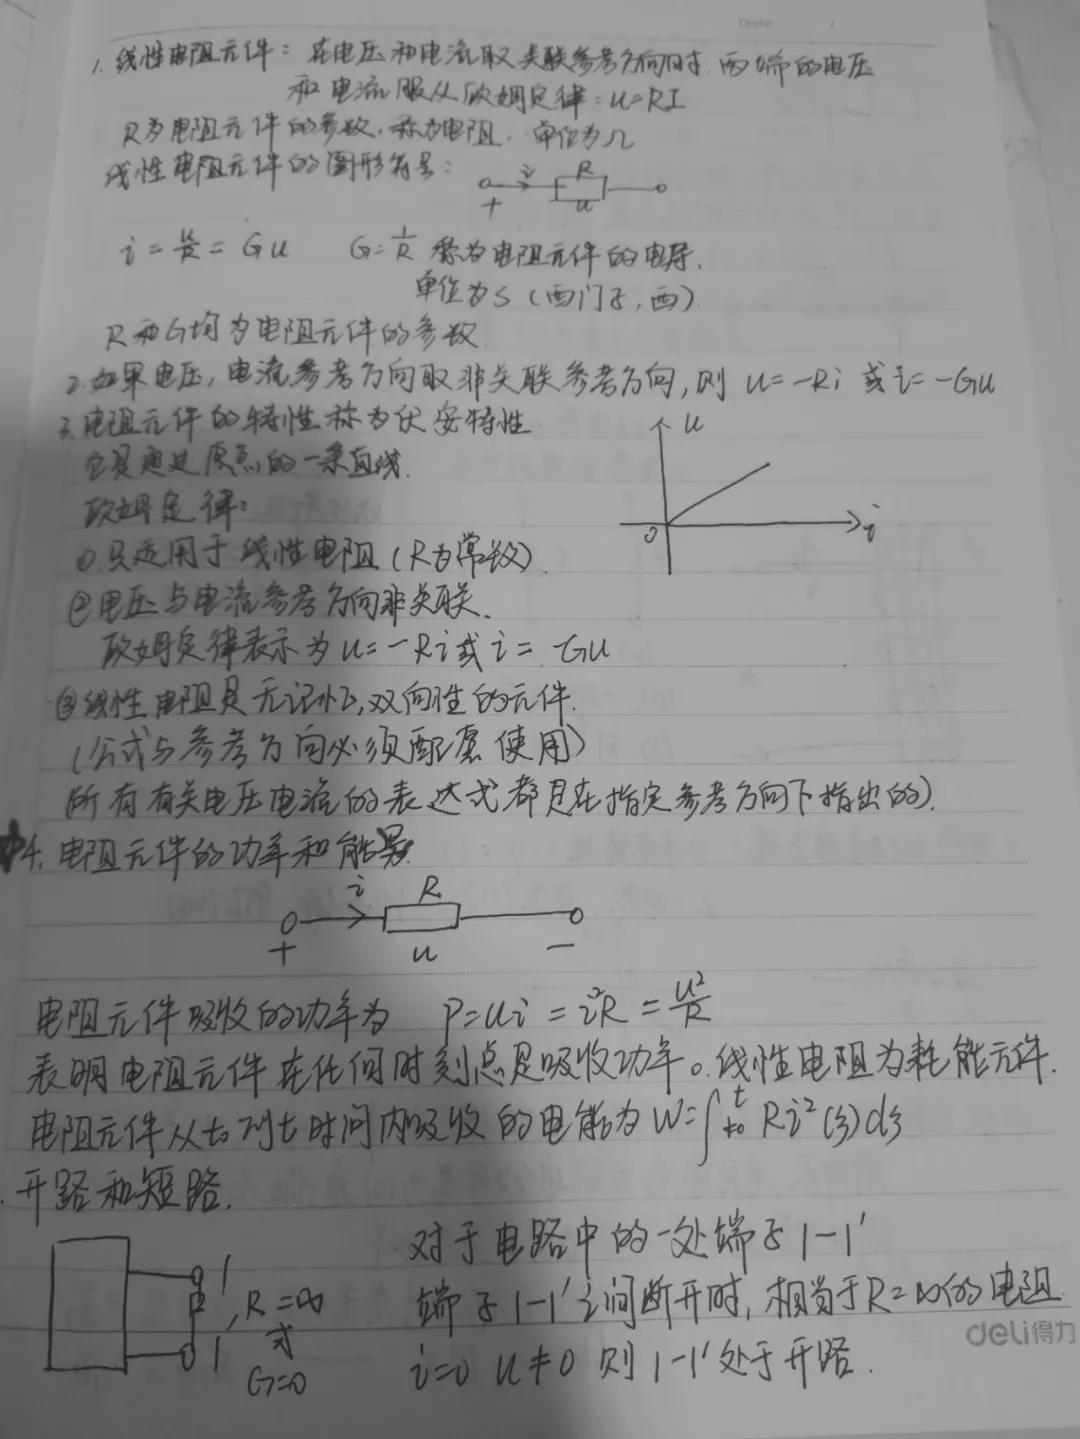 Date /
1. 线性电阻元件：在电压和电流取关联参考方向时, 两端的电压
和电流服从欧姆定律：u=RI
R为电阻元件的参数, 称为电阻. 单位为Ω
线性电阻元件的图形符号：
i R
+ u
i = u/R = Gu G=1/R 称为电阻元件的电导.
单位为S (西门子, 西).
R和G均为电阻元件的参数.
2. 如果电压, 电流参考方向取非关联参考方向, 则 u=-Ri 或 i=-Gu
3. 电阻元件的特性称为伏安特性
u
它是通过原点的一条直线.
欧姆定律：
0 i
① 只适用于线性电阻 (R为常数)
② 电压与电流参考方向非关联.
欧姆定律表示为 u=-Ri或 i= -Gu
③ 线性电阻是无记忆, 双向性的元件.
(公式与参考方向必须配套使用)
(所有有关电压电流的表达式都是在指定参考方向下指出的).
4. 电阻元件的功率和能量.
i R
+ u -
电阻元件吸收的功率为 P=ui=i²R=u²/R
表明电阻元件在任何时刻点是吸收功率。线性电阻为耗能元件.
电阻元件从t₀到t时间内吸收的电能为 W=∫t₀^t Ri²(ξ)dξ
开路和短路.
对于电路中的一处端子 1-1'
1' R=∞ 端子 1-1' 之间断开时, 相当于R=∞的电阻
或
deli得力
1 G=0 i=0 u≠0 则 1-1' 处于开路.